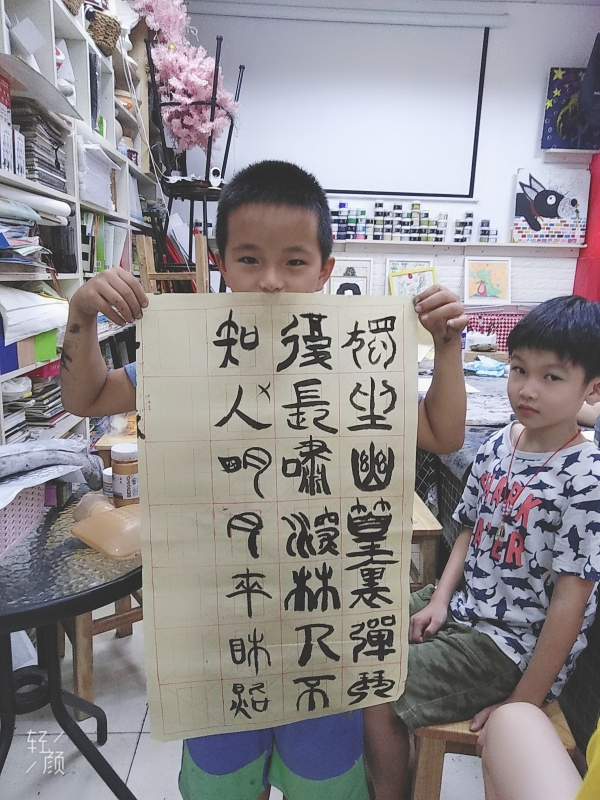 獨坐幽篁裏彈琴
復長嘯深林人不
知人明月來相照
SHARK
轻颜